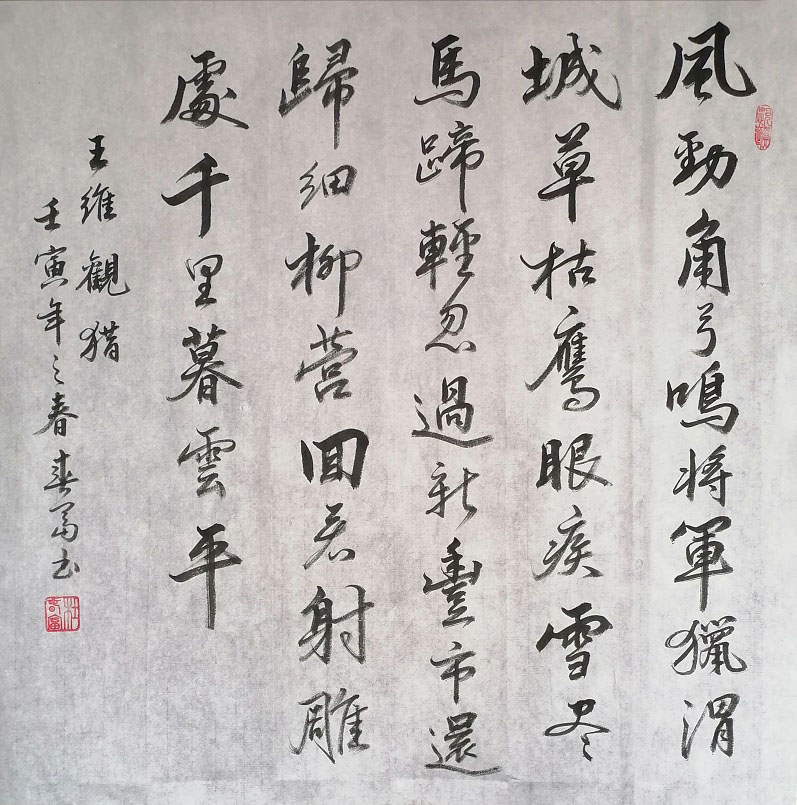 風勁角弓鳴将軍獵渭
城草枯鷹眼疾雪尽
馬蹄輕忽過新豐市還
歸細柳营回看射雕
處千里暮雲平
王維觀猎
壬寅年之春春富书